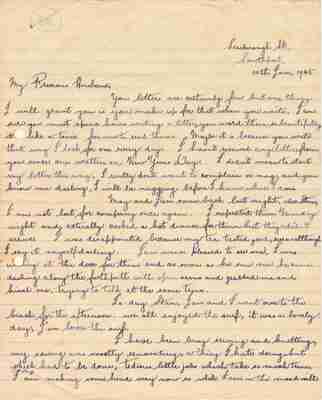 Scarborough St.
Southport
10th Jan. 1945
My Precious Husband,
Your letters are certainly few but one thing
I will grant you is you make up for that when you write, I am
you must spend hours writing a letter, you word them so beautifully
it is like a tonic for worn out nerves. Maybe it is because you write
that way I look for one every day. I haven't received any letters from
you since one written on New Years Day. I didn't mean to start
my letter this way, I really don't want to complain or nag, and you
know me darling, I will be nagging before I know where I am.
May and Jim came back last night, so
I am not lost for company once again. I expected them Sunday
night and actually cooked a hot dinner for them but they didn't
arrive. I was disappointed because my tea tasted good, even although
I say it myself darling.
waiting at the door for them and as soon as he saw me he came
dashing along the footpath with open arms and
kissed me, trying to talk at the same time.
To day Jim and I went over to the
beach for the afternoon. We all enjoyed the surf, it was a lovely
day, I am love the surf.
I have been busy sewing and knitting,
my sewing was mostly renovating, a thing I hate doing but
which had to be done, tedious little jobs which take so much time.
I am making some new while I am in the mood with